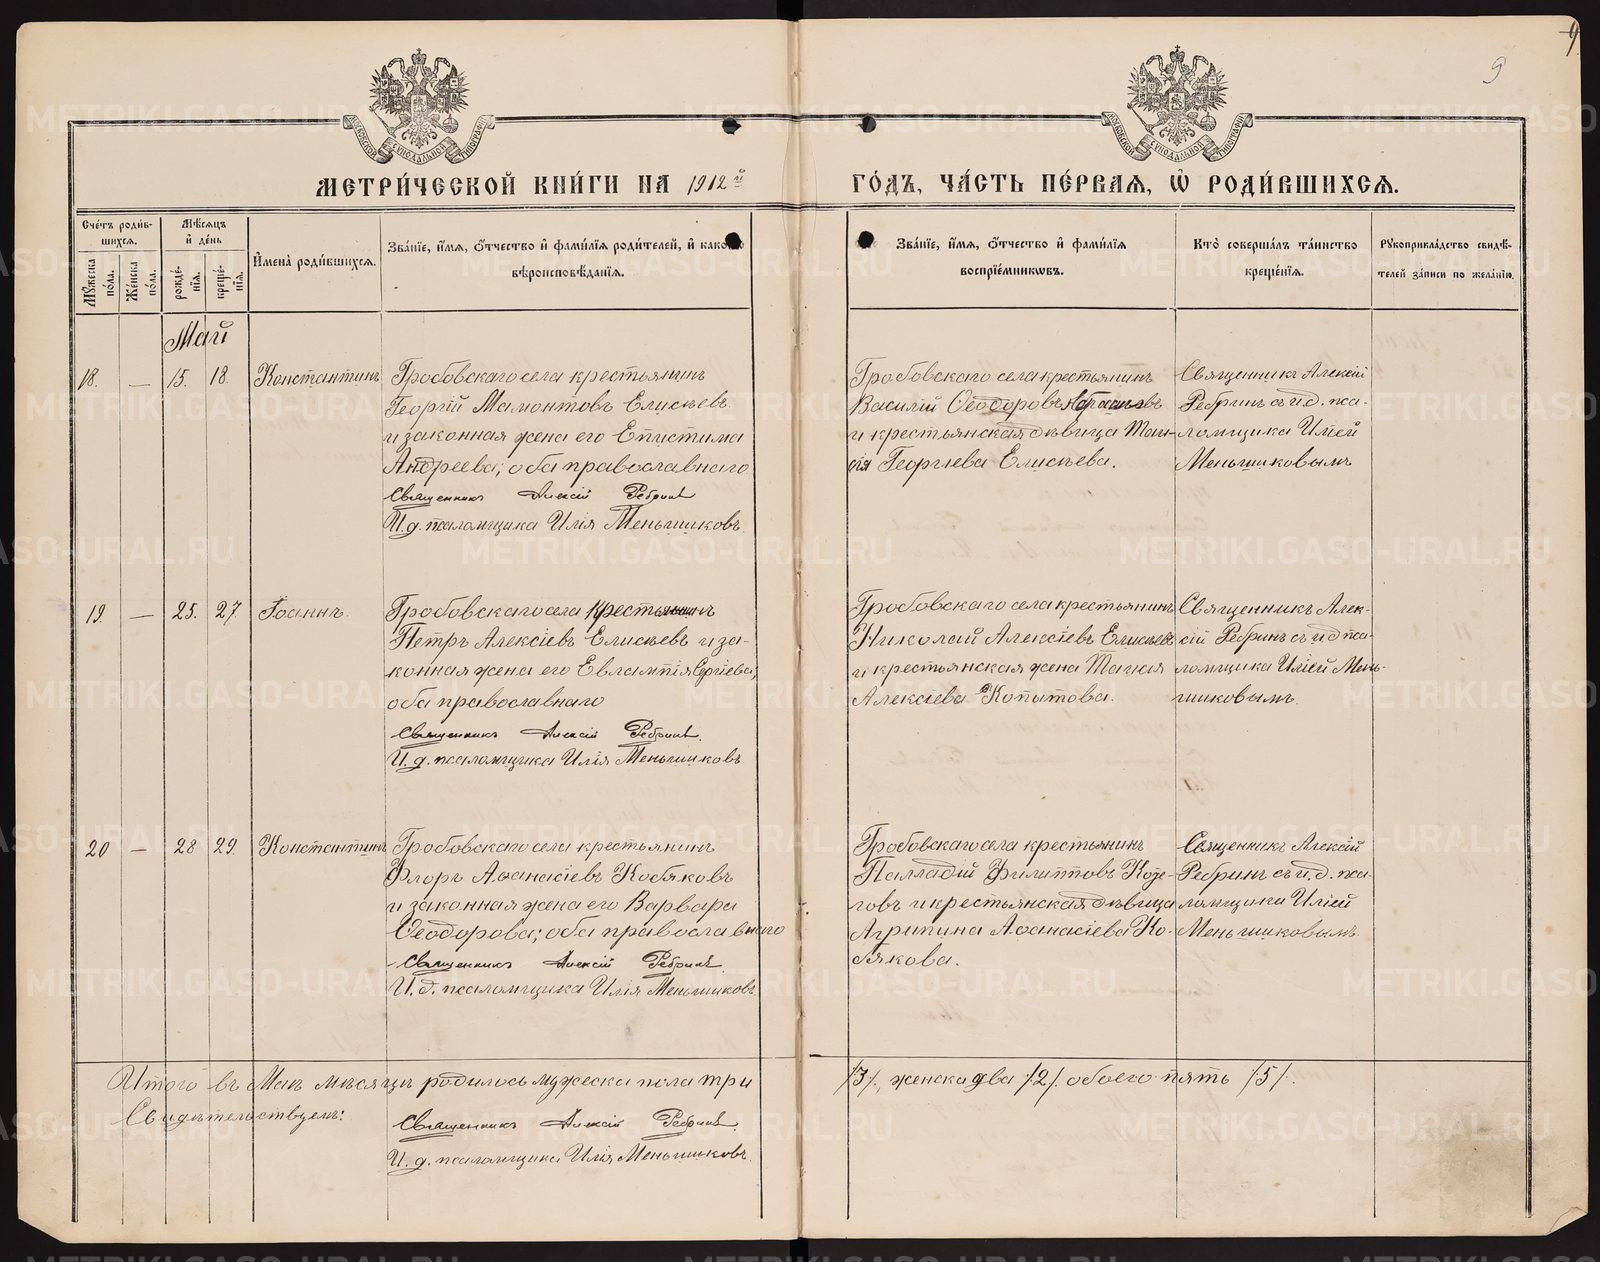 9
МЕТРИ́ЧЕСКОЙ КНИ́ГИ НА 1912й
ГО́ДЪ, ЧА́СТЬ ПЕ́РВАЯ, Ѽ РОДИ́ВШИХСЯ.
Сче́тъ роди́в-
шихся.
Мꙋ́жеска
по́ла.
Же́нска
по́ла.
Мѣ́сяцъ
и҆ де́нь
рожде́-
нїя.
креще́-
нїя.
И҆мена̀ роди́вшихся.
Зва́нїе, и҆́мя, ѻ҆́тчество и҆ фами́лїя роди́телей, и҆ како́гѡ
вѣроисповѣ́данїя.
Зва́нїе, и҆́мя, ѻ҆́тчество и҆ фами́лїя
воспрїе́мникѡвъ.
Кто̀ соверша́лъ та́инство
креще́нїя.
Рꙋкоприкла́дство свидѣ́-
телей за́писи по жела́нїю.
Май
18.
—
15.
18.
Константинъ
Гробовскаго села крестьянинъ
Георгій Мамонтовъ Елисѣевъ
и законная жена его Епистима
Андреева; оба православнаго
Священникъ Алексій Ребринъ
И. д. псаломщика Илія Меньшиковъ.
Гробовскаго села крестьянинъ
Василій Ѳеодоровъ
и крестьянская дѣвица Таи-
сія Георгіева Елисѣева.
Священникъ Алексій
Ребринъ съ и. д. пса-
ломщика Иліей
Меньшиковымъ
19.
—
25.
27.
Іоаннъ.
Гробовскаго села крестьянинъ
Петръ Алексіевъ Елисѣевъ и за-
конная жена его Евлампія Сергіева;
оба православнаго
Священникъ Алексій Ребринъ.
И. д. псаломщика Илія Меньшиковъ
Гробовскаго села крестьянинъ
Николай Алексіевъ Елисѣевъ
и крестьянская жена
Алексіева Копытова.
Священникъ Алек-
сій Ребринъ съ и д пса-
ломщика Иліей Мень-
шиковымъ.
20
—
28
29.
Константинъ
Гробовскаго села крестьянинъ
Флоръ Аѳанасіевъ Кобяковъ
и законная жена его Варвара
Ѳеодорова; оба православнаго
Священникъ Алексій Ребринъ.
И. д. псаломщика Илія Меньшиковъ.
Гробовскаго села крестьянинъ
Палладій Филипповъ Коже-
говъ и крестьянская дѣвица
Агрипина Аѳанасіева Ко-
бякова.
Священникъ Алексій
Ребринъ съ и. д. пса-
ломщика Иліей
Меньшиковымъ.
Итого въ Маѣ мѣсяцѣ родилось мужеска пола три /3/, женска два /2/ обоего пять /5/.
Свидѣтельствуемъ:
Священникъ Алексій Ребринъ.
И. д. псаломщика Илія Меньшиковъ.
METRIKI.GASO-URAL.RU